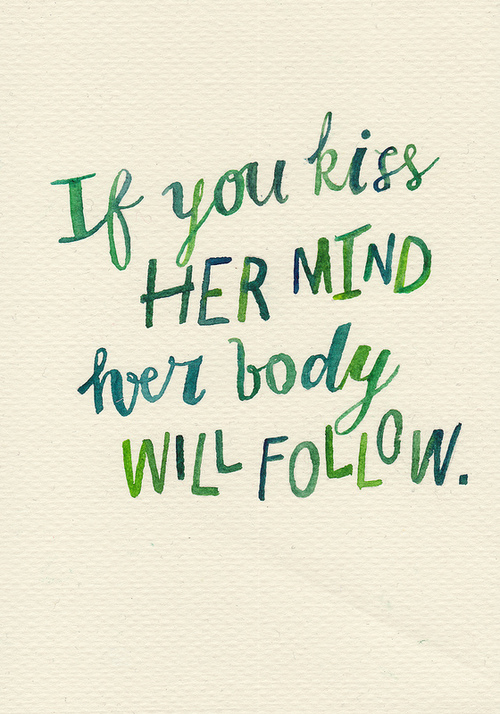 If you kiss
HER MIND
her body
WILL FOLLOW.